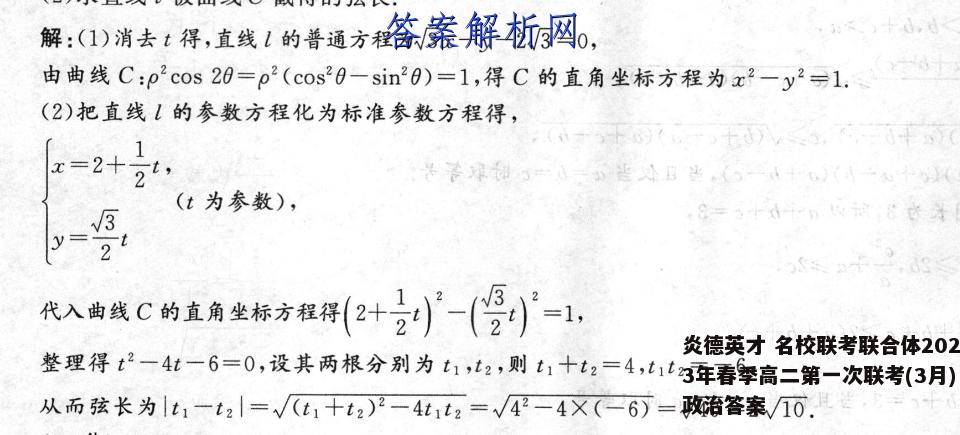 答案解析网
解:(1)消去 t 得,直线 l 的普通方程为√3x-y-2√3=0,
由曲线 C:ρ²cos 2θ=ρ²(cos²θ-sin²θ)=1,得 C 的直角坐标方程为 x²-y²=1.
(2)把直线 l 的参数方程化为标准参数方程得,
{x=2+1/2 t,
(t 为参数),
y=√3/2 t
代入曲线 C 的直角坐标方程得(2+1/2 t)²-(√3/2 t)²=1,
整理得 t²-4t-6=0,设其两根分别为 t₁,t₂,则 t₁+t₂=4,t₁t₂=-6,
从而弦长为|t₁-t₂|=√(t₁+t₂)²-4t₁t₂=√4²-4×(-6)=√40=2√10.
炎德英才 名校联考联合体202
3年春季高二第一次联考(3月)
政治答案